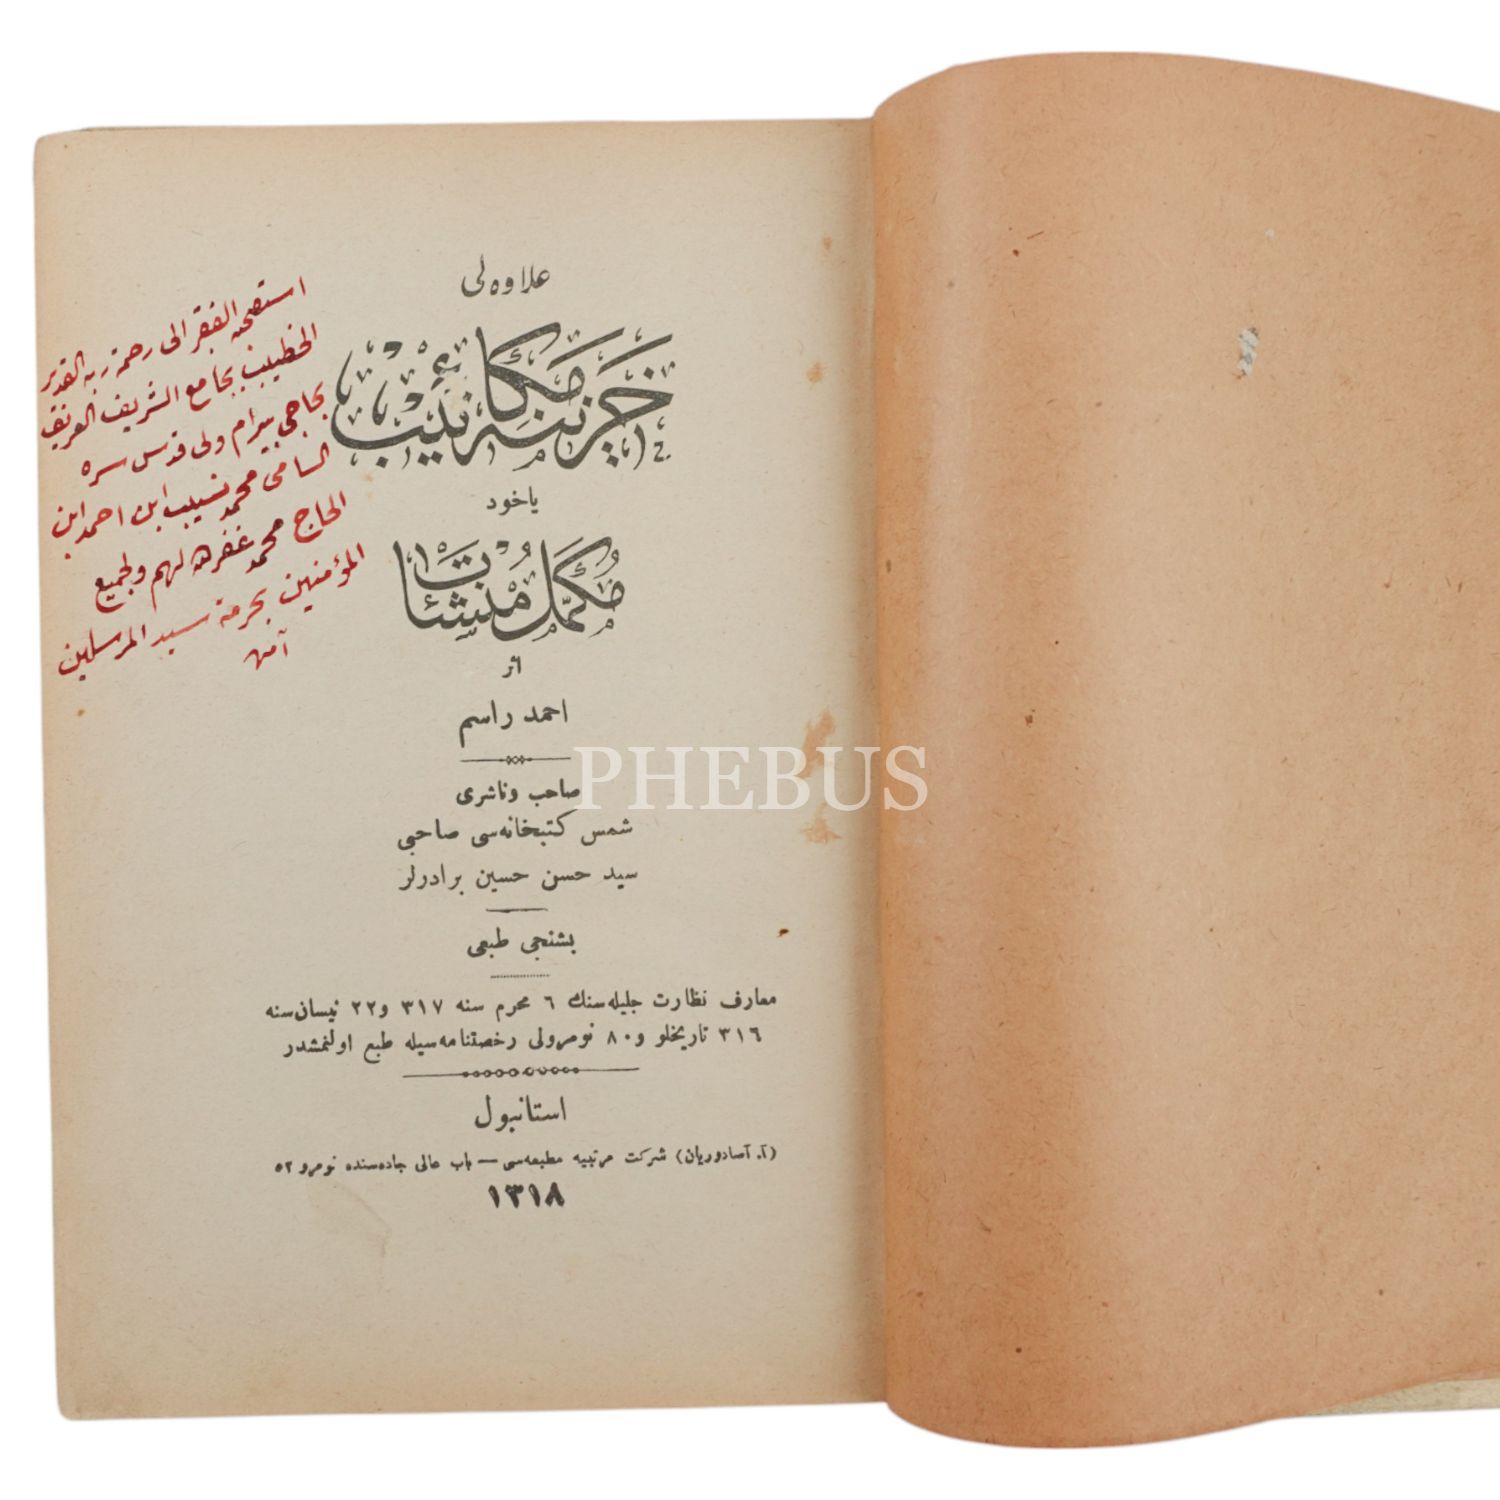 علاوه‌لی
خزینه مکاتیب
یاخود
مکمل منشئات
اثر
احمد راسم
صاحب و ناشری
شمس کتبخانه‌سی صاحبی
سید حسن حسین برادرلر
بشنجی طبعی
معارف نظارت جلیله‌سنك ٦ محرم سنه ٣١٧ و ٢٢ نیسان سنه
٣١٦ تاریخلو و ٨٠ نومرولی رخصتنامه‌سیله طبع اولنمشدر
استانبول
(آ. آصادوریان) شرکت مرتبیه مطبعه‌سی — باب عالی جاده‌سنده نومرو ٥٢
١٣١٨
استصحبه الفقر الی رحمة ربه القدیر
الخطیب بجامع الشریف
بحاجی بیرام ولی قدس سره
السامی محمد نسیب ابن احمد ابن
الحاج محمد غفر لهم ولجمیع
المؤمنین بحرمة سید المرسلین
آمین
PHEBUS